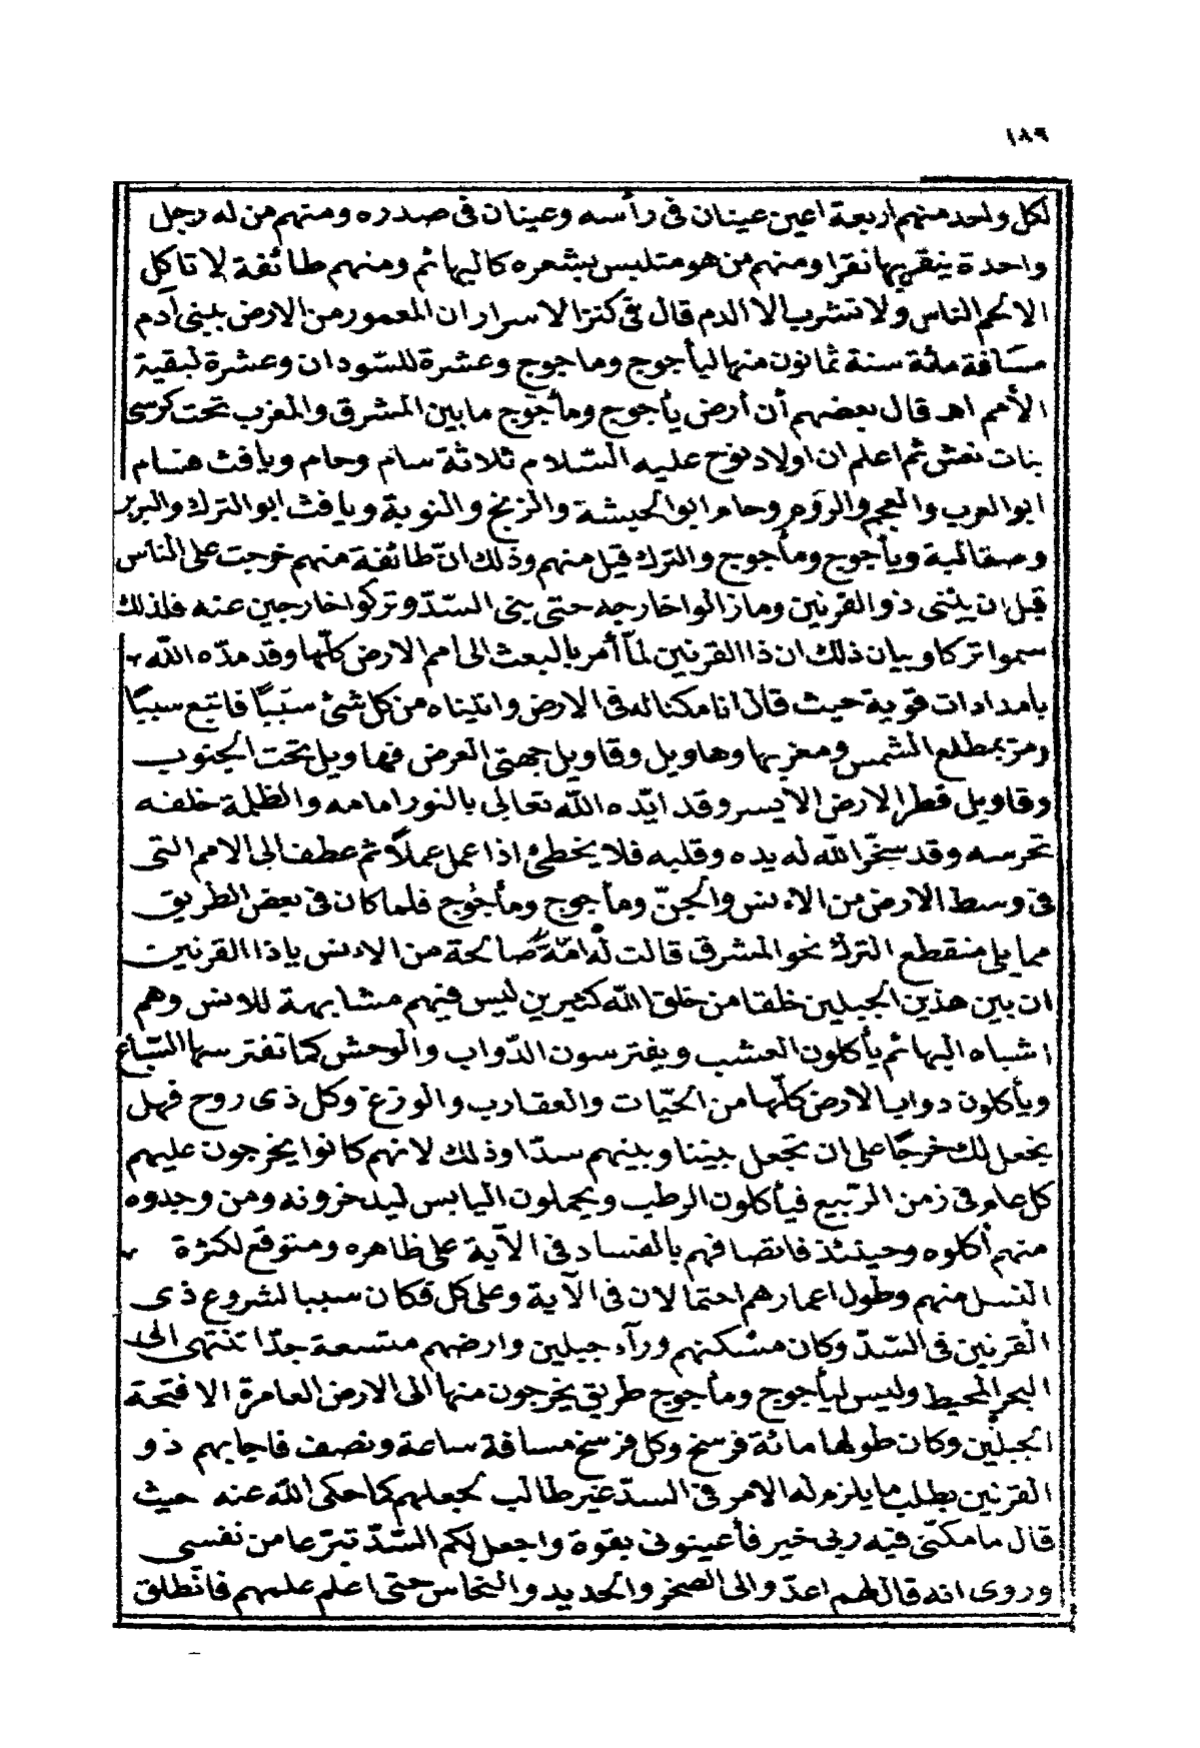 ١٨٩
لكل واحد منهم اربعة اعين عينان فى رأسه وعينان فى صدره ومنهم من له رجل
واحدة ينقر بها نقرا ومنهم من هو متلبس بشعره كالبهائم ومنهم طائفة لا تاكل
الا لحم الناس ولا تشرب الا الدم قال فى كنز الاسرار ان المعمور من الارض ببنى آدم
مسافة مائة سنة ثمانون منها ليأجوج وماجوج وعشرة للسّودان وعشرة لبقية
الأمم اهـ قال بعضهم أن أرض يأجوج ومأجوج ما بين المشرق والمغرب تحت كرسى
بنات نعش ثم اعلم ان اولاد نوح عليه السّلام ثلاثة سام وحام ويافث فسام
ابو العرب والعجم والرّوم وحام ابو الحبشة والزنج والنوبة ويافث ابو الترك والبربر
وصقالبة ويأجوج ومأجوج والترك قيل منهم وذلك انّ طائفة منهم خرجت على الناس
قبل ان يبنى ذو القرنين وما زالوا خارجه حتى بنى السّدّ وتركوا خارجين عنه فلذلك
سموا تركا وبيان ذلك ان ذا القرنين لمّا أمر بالبعث الى امم الارض كلّها وقد مدّه الله
بامدادات قوية حيث قال انا مكنا له فى الارض واتيناه من كل شئ سببًا فاتبع سببًا
ومرّ بمطلع الشمس ومغربها وهاويل وقاويل جهتى العرض فهاويل تحت الجنوب
وقاويل قطر الارض الايسر وقد ايّده الله تعالى بالنور امامه والظلمة خلفه
تحرسه وقد سخّر الله له يده وقلبه فلا يخطئ اذا عمل عملاً ثم عطف الى الامم التى
فى وسط الارض من الانس والجنّ ومأجوج ومأجوج فلما كان فى بعض الطريق
مما يلى منقطع الترك نحو المشرق قالت له امّة صالحة من الانس يا ذا القرنين
ان بين هذين الجبلين خلقا من خلق الله كثيرين ليس فيهم مشابهة للانس وهم
اشباه البهائم يأكلون العشب ويفترسون الدّواب والوحش كما تفترسها السّباع
ويأكلون دواب الارض كلّها من الحيّات والعقارب والوزغ وكل ذى روح فهل
يجعل لك خرجًا على ان تجعل بيننا وبينهم سدّا وذلك لانهم كانوا يخرجون عليهم
كل عام فى زمن الرّبيع فيأكلون الرطب ويحملون اليابس ليدخرونه ومن وجدوه
منهم أكلوه وحينئذ فاتصافهم بالفساد فى الآية على ظاهره ومتوقع لكثرة
النسل منهم وطول اعمارهم احتمالان فى الآية وعلى كل فكان سببا لشروع ذى
القرنين فى السّدّ وكان مسكنهم ورآء جبلين وارضهم متسعة جدّا تنتهى الى
البحر المحيط وليس ليأجوج ومأجوج طريق يخرجون منها الى الارض العامرة الا فتحة
الجبلين وكان طولها مائة فرسخ وكل فرسخ مسافة ساعة ونصف فاجابهم ذو
القرنين بطلب ما يلزم له الامر فى السدّ غير طالب لجعلهم كما حكى الله عنه حيث
قال ما مكنّى فيه ربى خير فأعينونى بقوة واجعل لكم السّدّ تبرّعا من نفسى
وروى انه قال لهم اعدّوا الى الصخر والحديد والنحاس حتى اعلم علمهم فانطلق